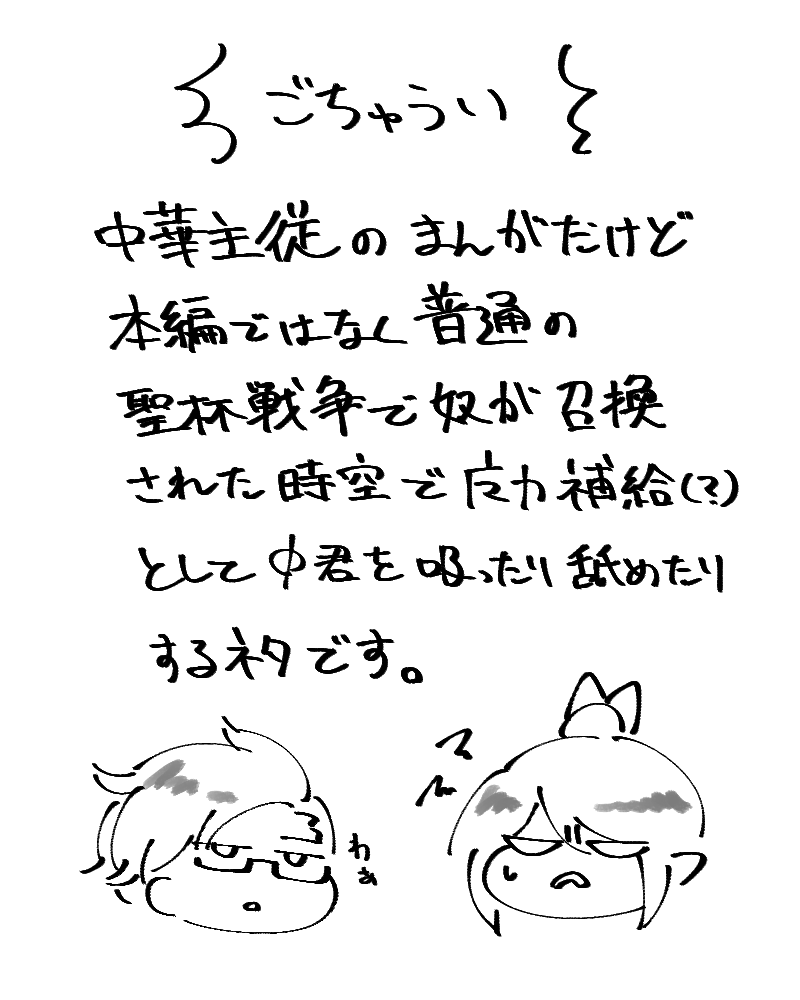 ごちゅうい
中華主従のまんがだけど
本編ではなく普通の
聖杯戦争で奴が召換
された時空で广力補給(?)
として中君を吸ったり舐めたり
するネタです。
わぁ